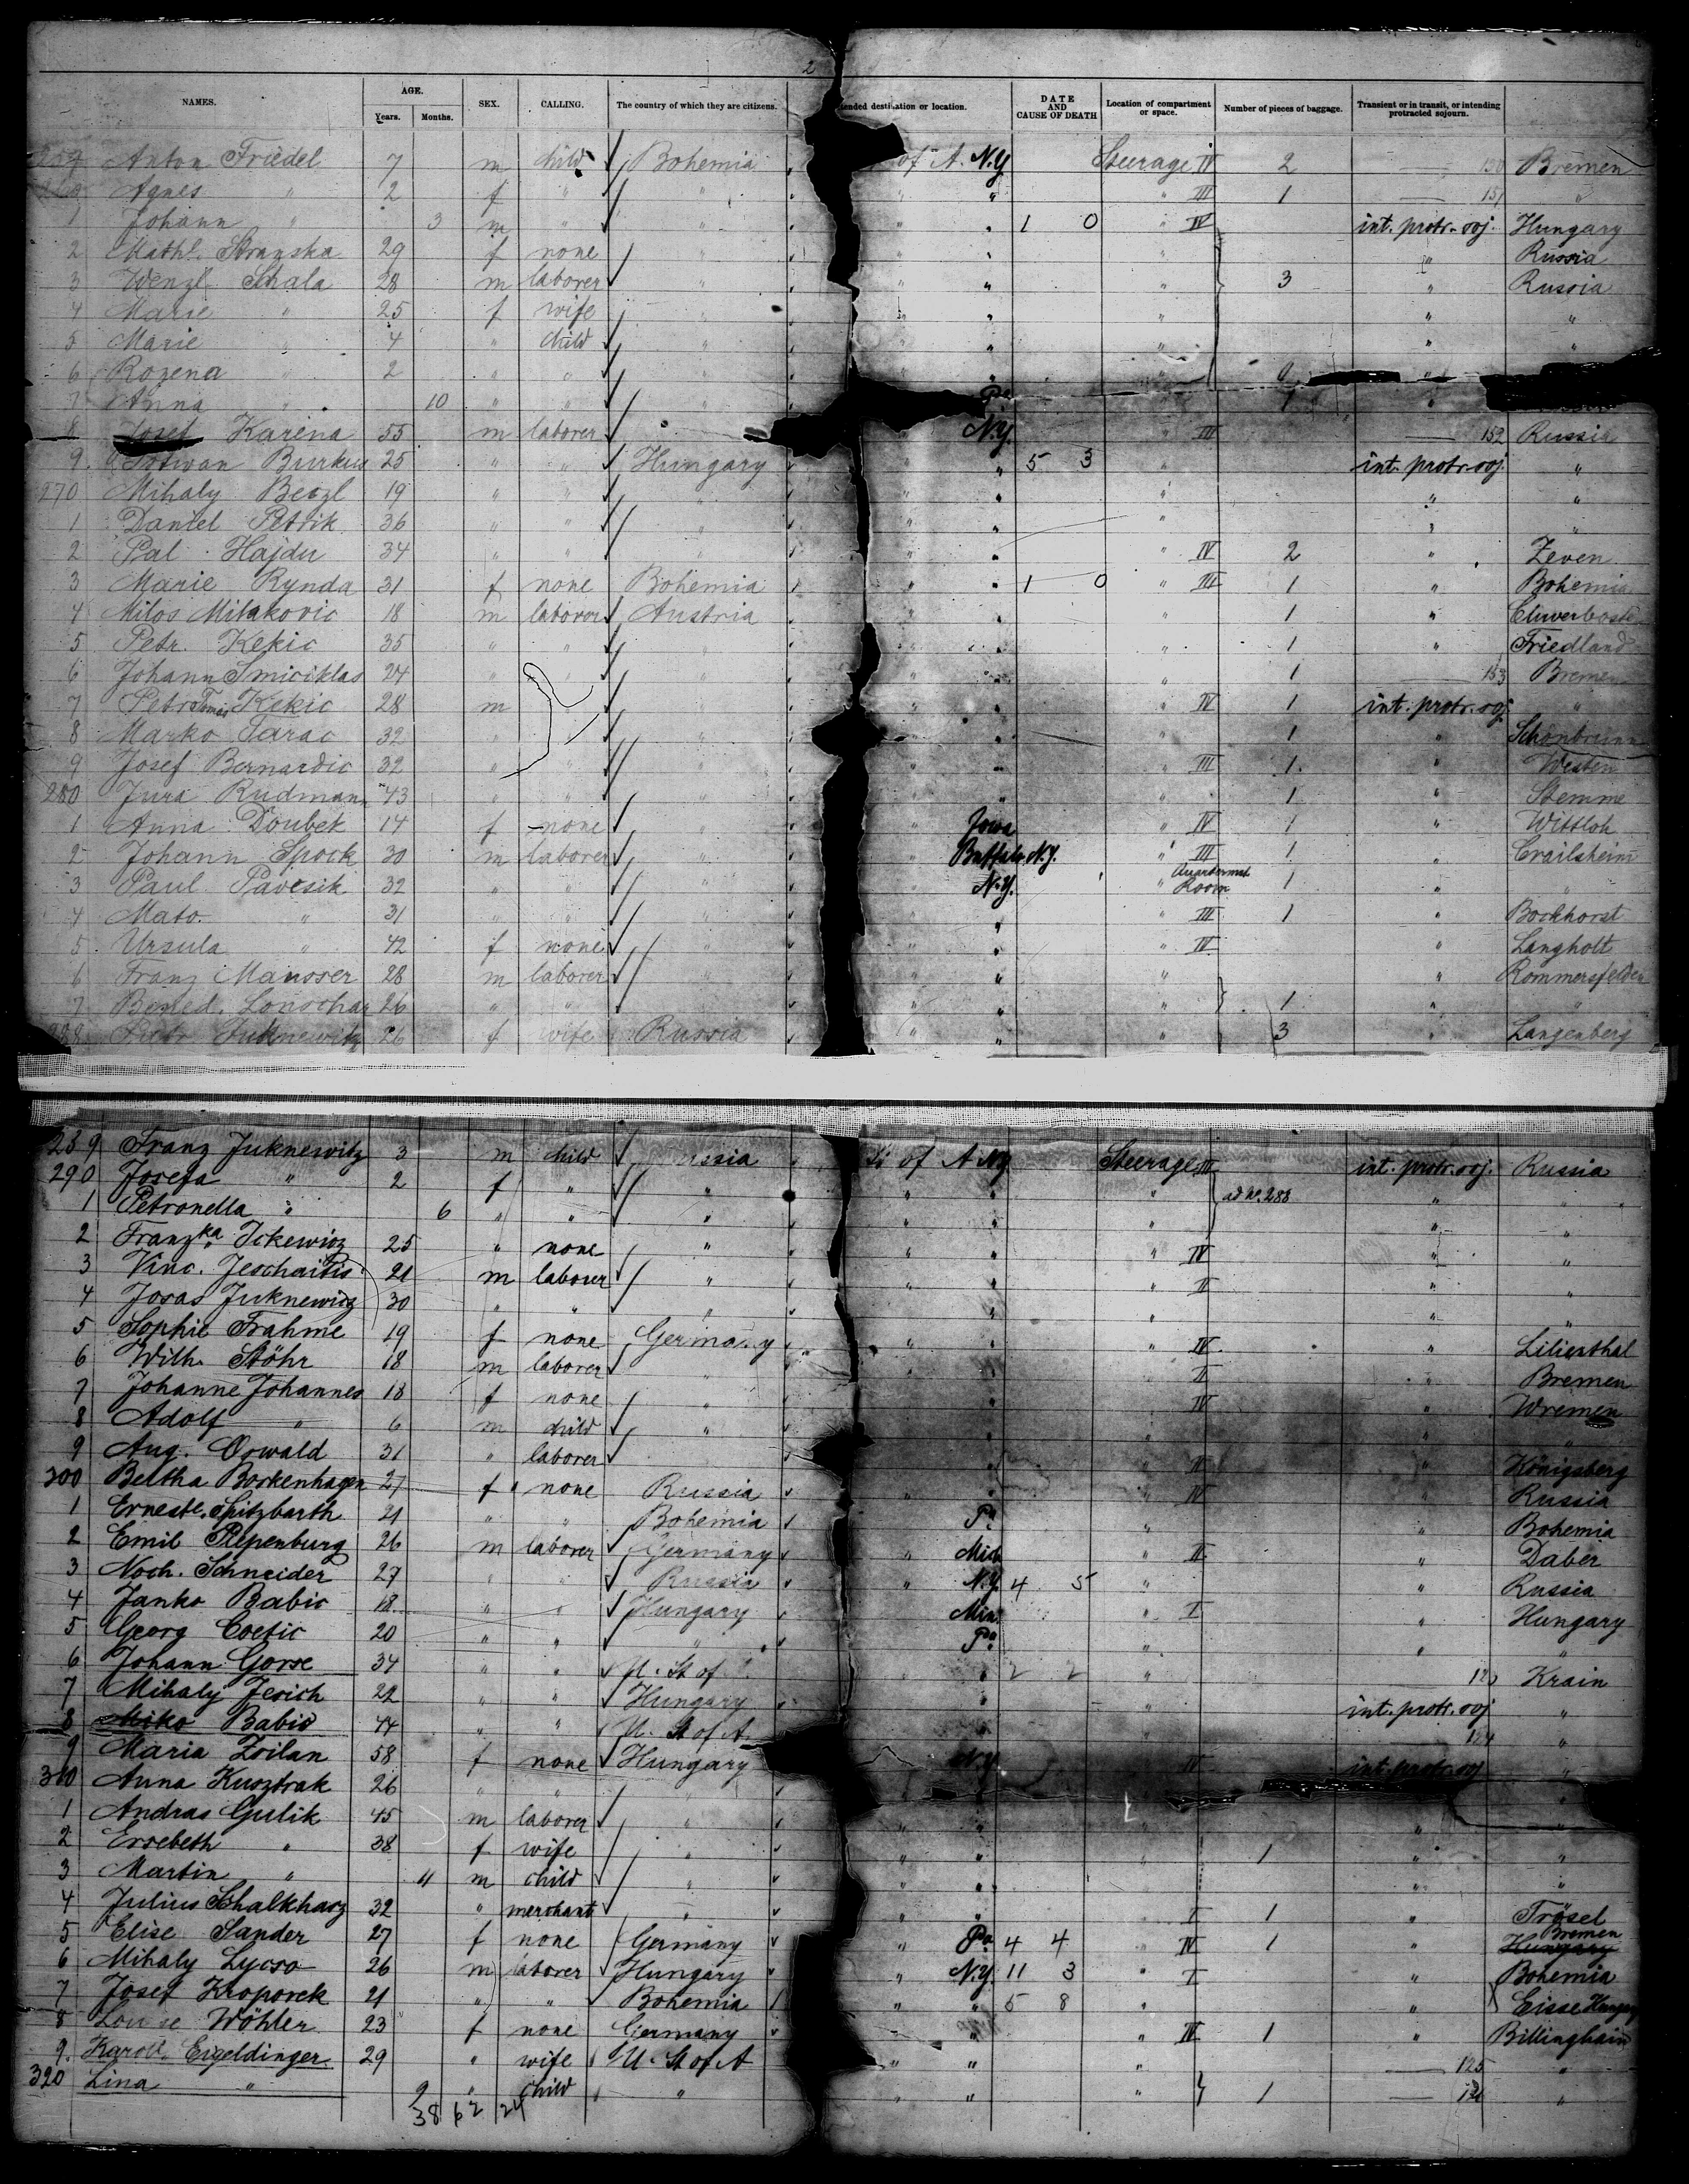 2
NAMES. AGE. Years. Months. SEX. CALLING. The country of which they are citizens. tended destination or location. DATE AND CAUSE OF DEATH Location of compartment or space. Number of pieces of baggage. Transient or in transit, or intending protracted sojourn.
259 Anton Friedel 7 m child Bohemia of A. N.Y. Steerage IV 2 — 150 Bremen
Agnes " 2 f " " " III 1 — 151 "
1 Johann " 3 m " " " 1 0 " IV int. protr. soj. Hungary
2 Math. Stranska 29 f none " " " " Russia
3 Wenzl Schala 28 m laborer " " " 3 " Russia
4 Marie " 25 f wife " " " " "
5 Marie " 4 " child " " " " "
6 Rozena " 2 " " " " "
7 Anna " 10 " " " Pa. "
8 Josef Karena 55 m laborer " " N.Y. " III — 152 Russia
9 Istwan Burkus 25 " " Hungary " " 5 3 " int. protr. soj. "
270 Mihaly Beczl 19 " " " " " " " "
1 Daniel Petrik 36 " " " " " " " "
2 Pal Hajdu 34 " " " " " " IV 2 " Zeven
3 Marie Rynda 31 f none Bohemia " " 1 0 " III 1 " Bohemia
4 Milos Milakovic 18 m laborer Austria " " " 1 "
5 Petr. Kekic 35 " " " " " " 1 " Friedland
6 Johann Smiciklas 24 " " " " " " 1 — 153 Bremen
7 Petr Tomas Kekic 28 m " " " " " IV 1 int. protr. soj. "
8 Marko Tarac 32 " " " " " " 1 " Schönbrunn
9 Josef Bernardic 32 " " " " " " III 1 " Westen
280 Jura Rudmann 43 " " " " " " 1 " Stemme
1 Anna Doubek 14 f none " " Iowa " IV 1 " Wittloh
2 Johann Spock 30 m laborer " " Buffalo N.Y. " III 1 " Crailsheim
3 Paul Pavesik 32 " " " " N.Y. " Room 1 " "
4 Mato " 31 " " " " " " III 1 Bockhorst
5 Ursula " 42 f none " " " " IV " Langholt
6 Franz Mausser 28 m laborer " " " " " Rommersfelden
7 Bened. Lonschar 26 " " " " " " 1 " "
288 Juknewitz 26 f wife Russia " " " 3 " Langenberg
289 Franz Juknewitz 3 m child ussia St of A N.Y. Steerage III int. protr. soj. Russia
290 Josefa " 2 f " " " " " ad No. 288 " "
1 Petronella " 6 " " " " " " " "
2 Franzka Ickewicz 25 " none " " " " IV " "
3 Vinc. Jeschaitis 21 m laborer " " " " II " "
4 Josas Juknewicz 30 " " " " " " "
5 Sophie Frahme 19 f none Germany " " " IV " Lilienthal
6 Wilh. Stöhr 18 m laborer " " " " II " Bremen
7 Johanne Johannes 18 f none " " " " IV " Wremen
8 Adolf " 6 m child " " " " " "
9 Aug. Oswald 31 " laborer " " " " II " Königsberg
300 Bertha Borkenhagen 27 f none Russia " " " IV " Russia
1 Erneste. Spitzbarth 21 " " Bohemia Pa. " " Bohemia
2 Emil Piepenburg 26 m laborer Germany " Mich. " II " Daber
3 Noch. Schneider 27 " " Russia " N.Y. 4 5 " " Russia
4 Janko Babic 18 " " Hungary Min. " I " Hungary
5 Georg Coetic 20 " " " Pa. " " "
6 Johann Gorse 34 " " U. St of A. " " 2 2 " — Krain
7 Mihaly Jesich 22 " " Hungary " " int. protr. soj. "
8 Miko Babic 44 " " U. St of A. " " — 124 "
9 Maria Zoilan 58 f none Hungary N.Y. IV int. protr. soj. "
310 Anna Kusztrak 26 " " " "
1 Andras Gulik 45 m laborer " " " " " "
2 Ersebeth " 38 f wife " " " " 1 " "
3 Martin " 11 m child " " " " " "
4 Julius Schalkharz 32 " merchant " " " " I 1 " Trösel
5 Elise Sander 27 f none Germany " Pa. 4 4 " IV 1 " Bremen Hungary
6 Mihaly Lycso 26 m laborer Hungary " N.Y. 11 3 " I " Bohemia
7 Josef Kroporek 21 " " Bohemia " " 5 8 " " Eisse Hungary
8 Louise Wöhler 23 f none Germany " " " IV 1 " Billinghain
9. Karol. Eigeldinger 29 " wife U. St of A " " " — 125 "
320 Lina " 9 " child " " " " 1 — 126 "
38 62 24